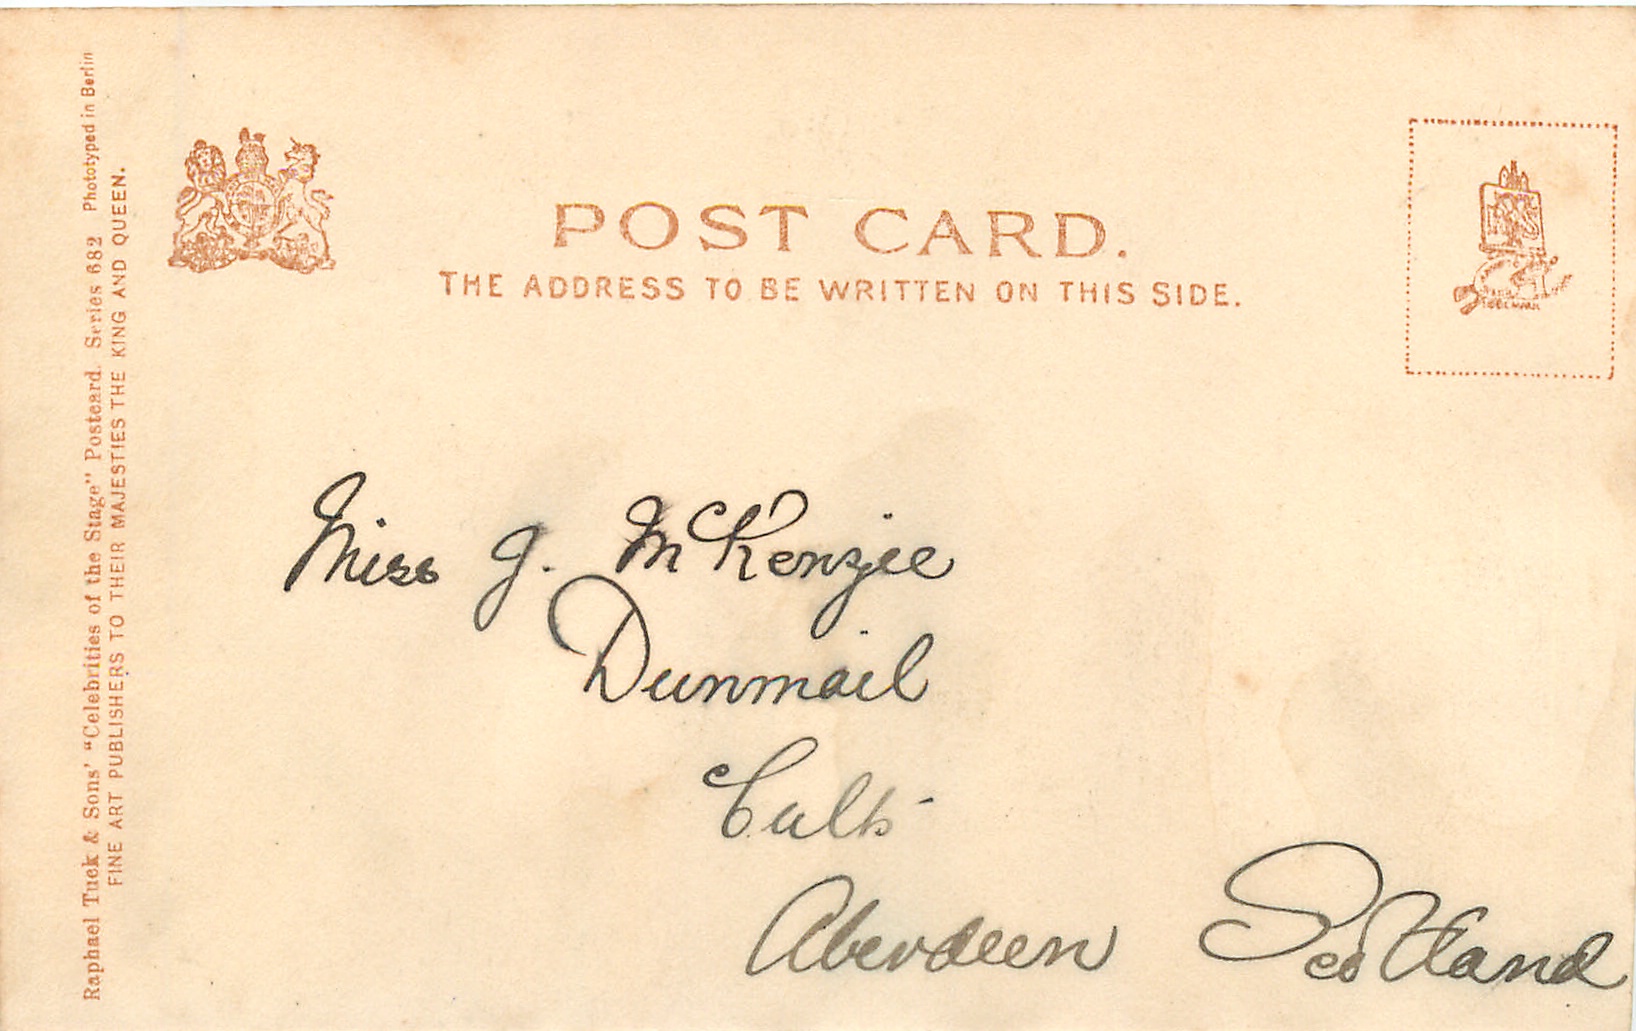 Raphael Tuck & Sons' "Celebrities of the Stage" Postcard. Series 682 Phototyped in Berlin
FINE ART PUBLISHERS TO THEIR MAJESTIES THE KING AND QUEEN.
POST CARD.
THE ADDRESS TO BE WRITTEN ON THIS SIDE.
Miss J. McKenzie
Dunmail
Cults
Aberdeen Scotland